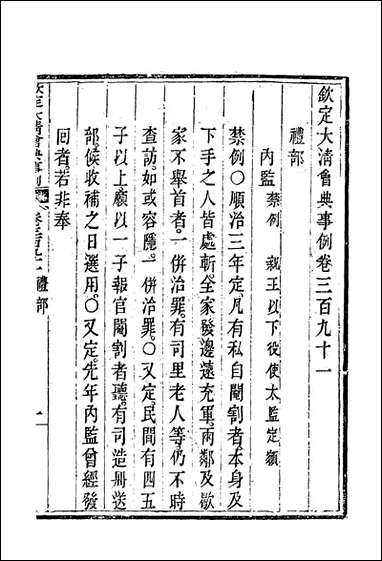 欽定大清會典事例卷三百九十一
禮部
內監 禁例 親王以下役使太監定額
禁例○順治三年定凡有私自閹割者本身及
下手之人皆處斬全家發邊遠充軍兩鄰及歇
家不舉首者一併治罪有司里老人等仍不時
查訪如或容隱一併治罪○又定民間有四五
子以上願以一子報官閹割者聽有司造冊送
部候收補之日選用○又定先年內監曾經發
回者若非奉
欽定大清會典事例 卷三百九十一 禮部 一